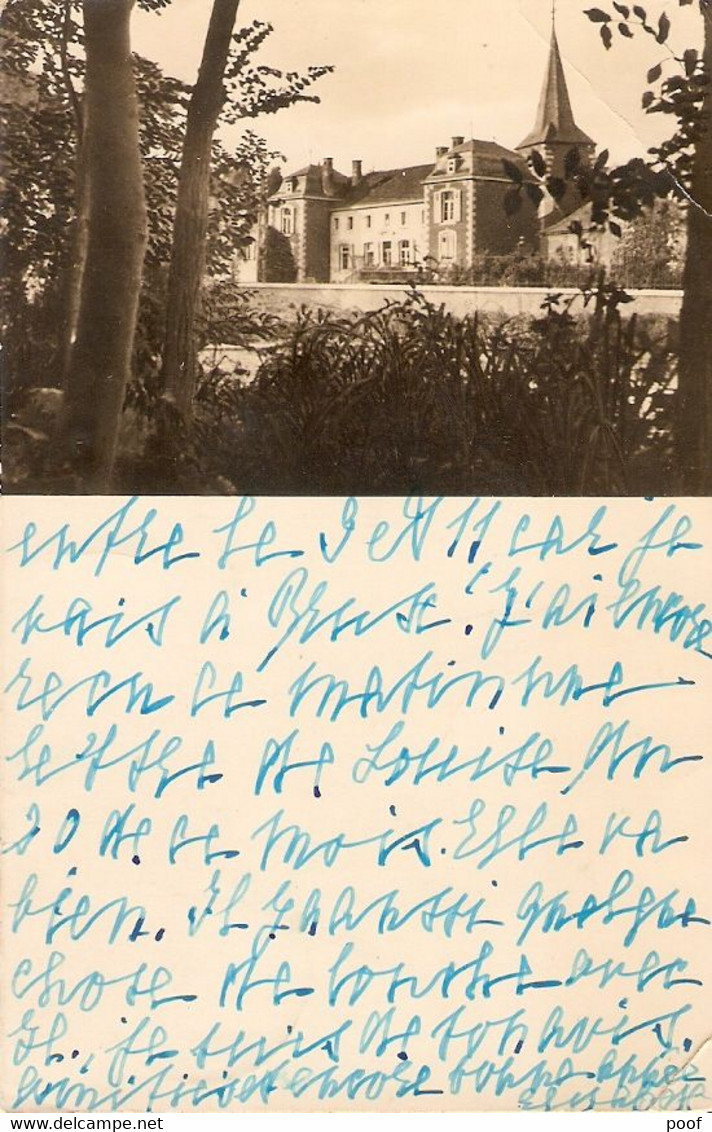 entre le 9 et 11 car je
vais à Brux. J'ai encore
recu ce matin une
lettre de Louise du
20 de ce mois. Elle va
bien. Il y a aussi quelque
chose de louche avec
H., je suis de ton avis.
encore bonne
poof